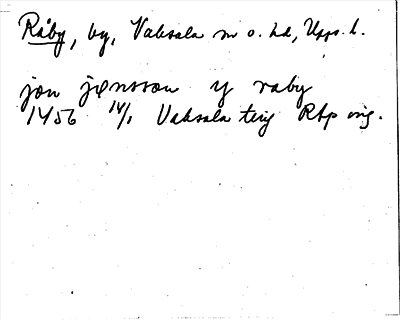 Råby, by, Vaksala sn o. hd, Upps. l.
jon jønsson y raby
1456 14/1 Vaksala ting Rbp orig.